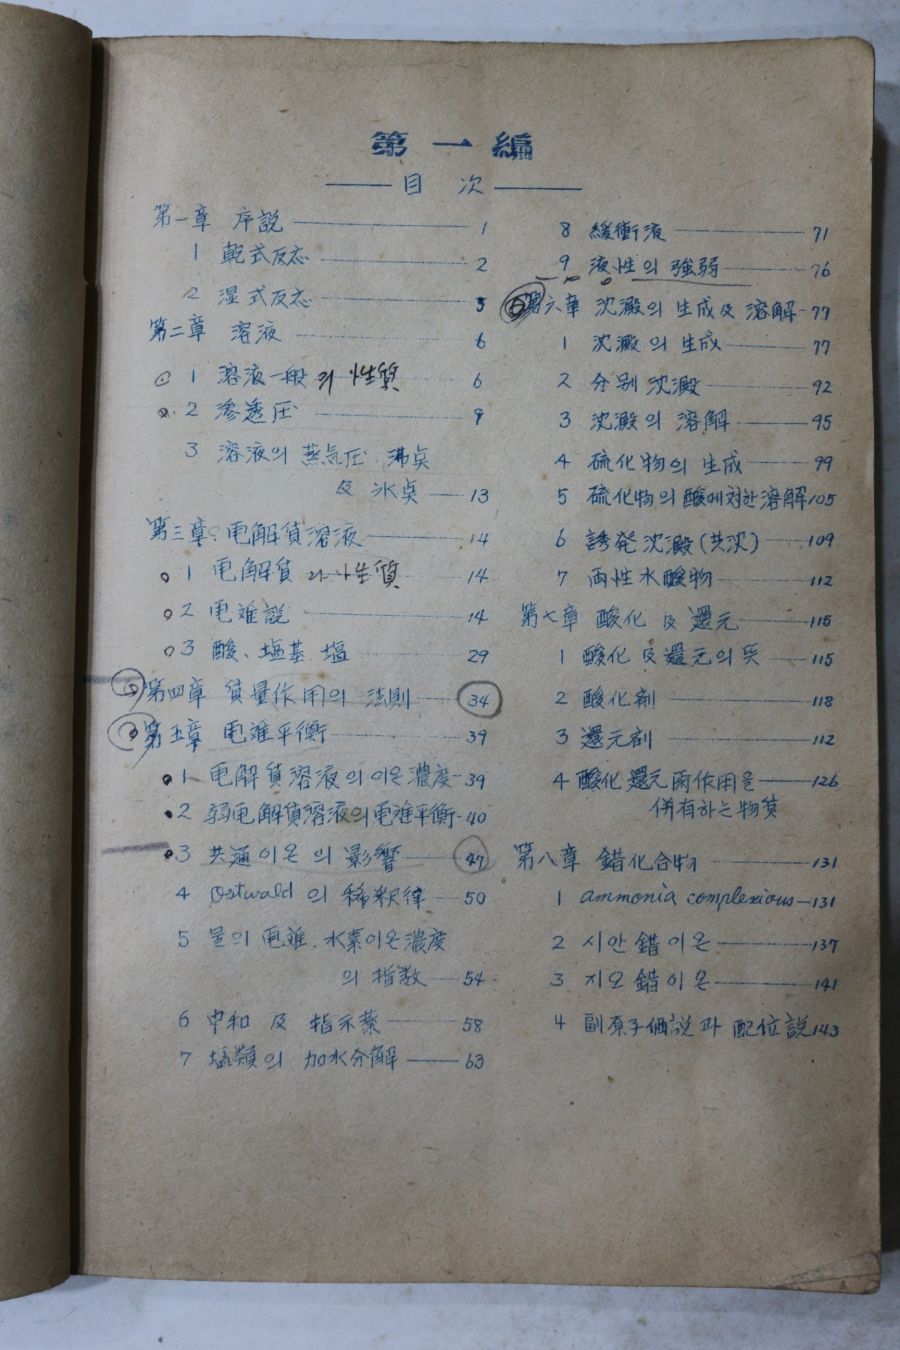 第一編
目 次
第一章 序說 1
1 乾式反応 2
2 湿式反応 5
第二章 溶液 6
1 溶液一般의 性質 6
2 渗透圧 9
3 溶液의 蒸気圧 沸点
及 氷点 13
第三章 電解質溶液 14
1 電解質의 性質 14
2 電離説 14
3 酸、塩基 塩 29
第四章 質量作用의 法則 34
第五章 電離平衡 39
1 電解質溶液의 이온濃度 39
2 弱電解質溶液의 電離平衡 40
3 共通이온의 影響 47
4 Ostwald의 稀釈律 50
5 물의 電離. 水素이온濃度
의 指数 54
6 中和 及 指示薬 58
7 塩類의 加水分解 63
8 緩衝液 71
9 液性의 強弱 76
第六章 沈澱의 生成及 溶解 77
1 沈澱의 生成 77
2 分別沈澱 92
3 沈澱의 溶解 95
4 硫化物의 生成 99
5 硫化物의 酸에対한 溶解 105
6 誘発沈澱(共沈) 109
7 両性水酸物 112
第七章 酸化 及 還元 115
1 酸化 及 還元의 뜻 115
2 酸化剤 118
3 還元剤 112
4 酸化還元両作用을 126
併有하는 物質
第八章 錯化合物 131
1 ammonia complexious 131
2 시안錯이온 137
3 지오錯이온 141
4 副原子価説과 配位説 143